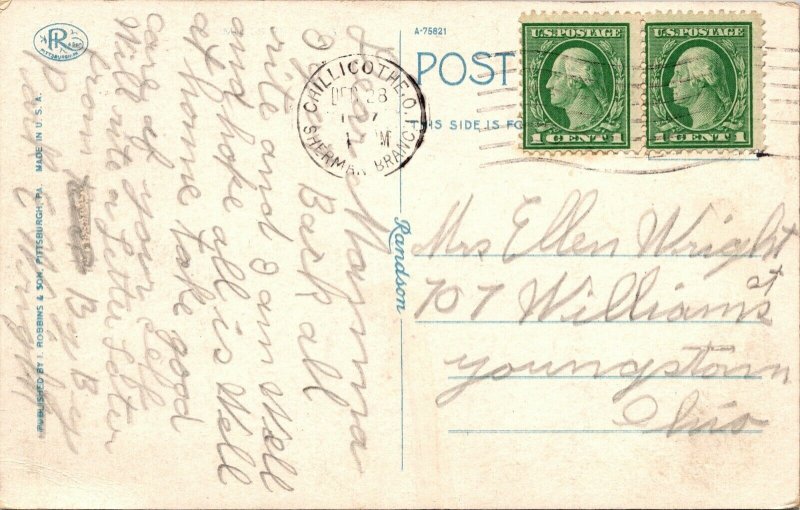 Dear Mamma
I am Back all
rite and I am Well
and hope all is Well
at home take good
care of your Self
Will rite a Letter Later
from By By
C Wright
PR
PITTSBURGH, PA.
PUBLISHED BY I. ROBBINS & SON, PITTSBURGH, PA. MADE IN U.S.A.
A-75821
POST
THIS SIDE IS FO
CHILLICOTHE, O.
DEC 28
7
M
SHERMAN BRANCH
U.S. POSTAGE
1 CENT 1
U.S. POSTAGE
1 CENT 1
Randson
Mrs Ellen Wright
707 Williams st
Youngstown
Ohio